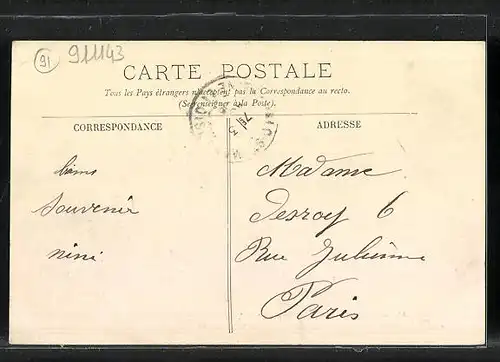 91 911143
CARTE POSTALE
Tous les Pays étrangers n'acceptent pas la Correspondance au recto.
(Se renseigner à la Poste).
CORRESPONDANCE
ADRESSE
bons
souvenir
nini
Madame
Desroy 6
Rue Julienne
Paris